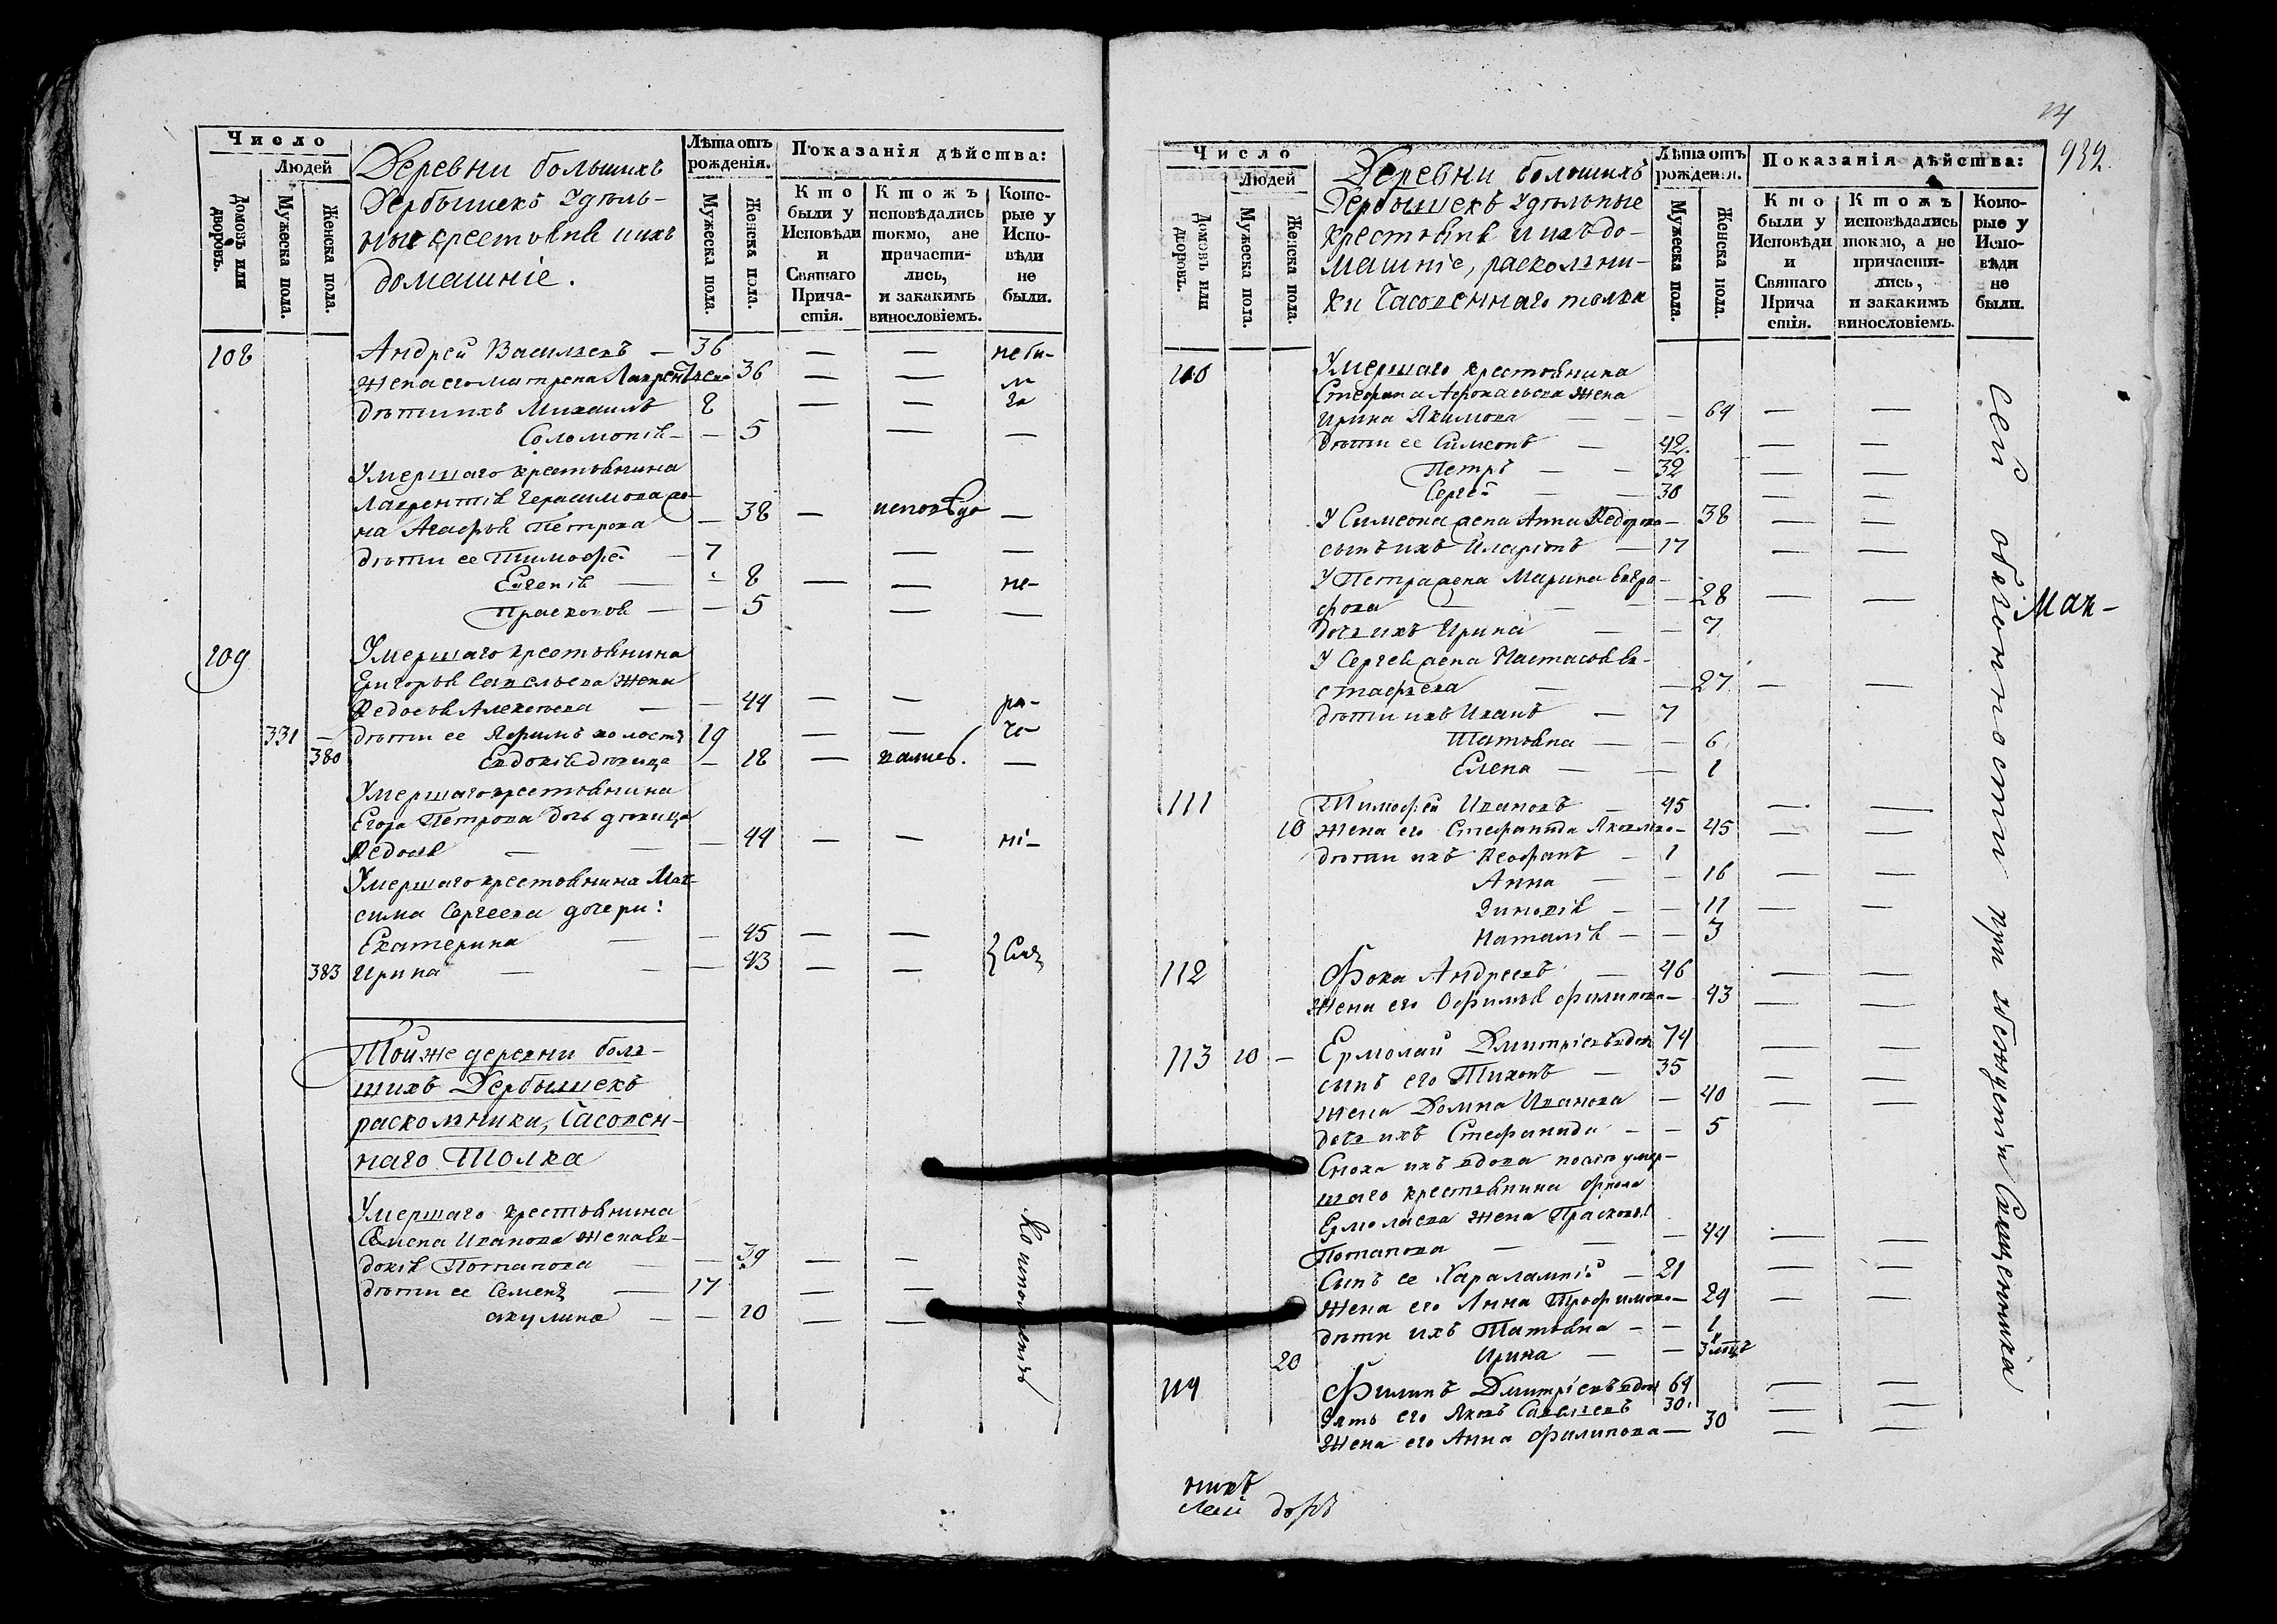 Число
Людей
Домовъ или дворовъ.
Мужеска пола.
Женска пола.
Деревни большихъ
Дербышекъ Удѣль-
ные крестьяне и ихъ
домашніе.
Лѣта отъ рожденія.
Мужеска пола.
Женска пола.
Показанія дѣйства:
Кто были у Исповѣди и Святаго Прича- стія.
Ктожъ исповѣдались токмо, а не причасти- лись, и закакимъ винословіемъ.
Кото- рые у Испо- вѣди не были.
108 Андрей Васильевъ — 36 — — небы-
Жена его Матрена Лаврентьева 36 — — ли
дѣти ихъ Михаилъ 8 — — за
Соломонія — — 5 — —
Умершаго крестьянина
Лаврентія Герасимова же-
на Агафья Петрова — 38 — исповѣдо —
дѣти ее Тимофей — 7 — —
Евгенія — 8 — — не-
Прасковья — — 5 — —
109 Умершаго крестьянина
Григорья Савельева Жена
Федосья Алексѣева — — 44 — — ра-
331 — дѣти ее Ефимъ холостъ 19 — — че-
380 Евдокія дѣвица — 18 — вались. —
Умершаго крестьянина
Егора Петрова дочь дѣвица
Федосья — — — 44 — — ні-
Умершаго крестьянина Мак-
сима Сергеева дочери:
Екатерина — — 45 — —
383 Ирина — — — 43 — —
Той же деревни боль-
шихъ Дербышекъ
раскольники, Часовен-
наго Толка
Умершаго крестьянина
Семена Иванова жена Ев-
докія Потапова — — 39 — —
дѣти ее Семенъ — 17 — —
акулина — — 20 — —
14
932.
Число
Людей
Домовъ или дворовъ.
Мужеска пола.
Женска пола.
Деревни большихъ
Дербышекъ Удѣльные
крестьяне и ихъ до-
машніе, раскольни-
ки Часовеннаго толка
Лѣта отъ рожденія.
Мужеска пола.
Женска пола.
Показанія дѣйства:
Кто были у Исповѣди и Святаго Прича стія.
Ктожъ исповѣдались токмо, а не причасти- лись, и закакимъ винословіемъ.
Кото- рые у Испо- вѣди не были.
110 Умершаго крестьянина
Стефана Афонасьева Жена
Ирина Якимова — — 64 — —
Дѣти ее Симеонъ — 42. — —
Петръ — — 32 — —
Сергей — — 30 — —
У Симеона жена Анна Федорова — 38 — —
сынъ ихъ Иларіонъ — 17 — —
У Петра жена Марина Евгра-
фова — — — 28 — —
дочь ихъ Ирина — — 7
У Сергея жена Настасья Ев-
стафьева — — 27 — —
дѣти ихъ Иванъ — 7
Татьяна — — 6
Елена — — 1
111 Тимофей Ивановъ — 45 — —
10 Жена его Стефанида Яковлева — 45 — —
дѣти ихъ Феофанъ — 1
Анна — — 16 — —
Зиновія — — 11 — —
Наталія — — 3
112 Фока Андреевъ — 46 — —
Жена его Офимья Филипова — 43 — —
113 10 — Ермолай Дмитріевъ вдов 74 — —
сынъ его Тихонъ — 35 — —
Жена Домна Иванова — 40 — —
дочь ихъ Стефанида — — 5
Сноха ихъ вдова послѣ умер-
шаго крестьянина Фрола
Ермолаева жена Прасковья
Потапова — — — 44 — —
Сынъ ее Харалампій — 21 — —
Жена его Анна Трофимова — 24 — —
дѣти ихъ Татьяна — — 1
20 Ирина — — 3 мца
114 Филипъ Дмитріевъ вдов 64 — —
Зять его Яковъ Савельевъ 30. — —
Жена его Анна Филипова — 30 — —